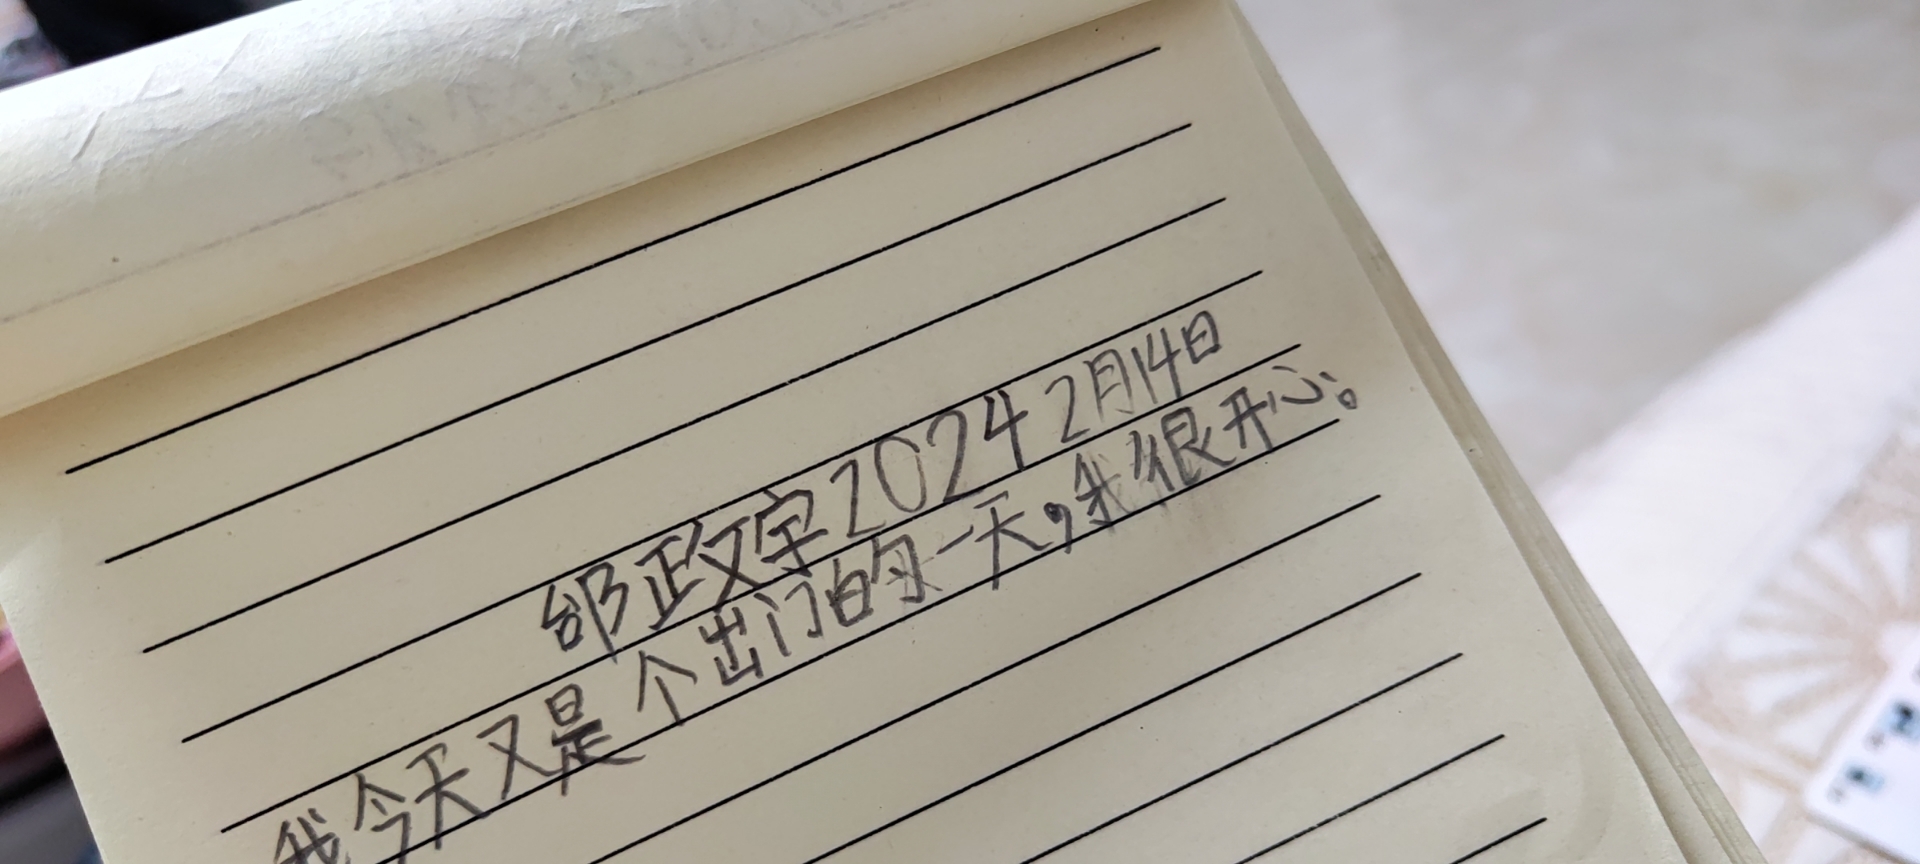 邰政宇2024 2月14日
我今天又是个出门的每一天，我很开心。